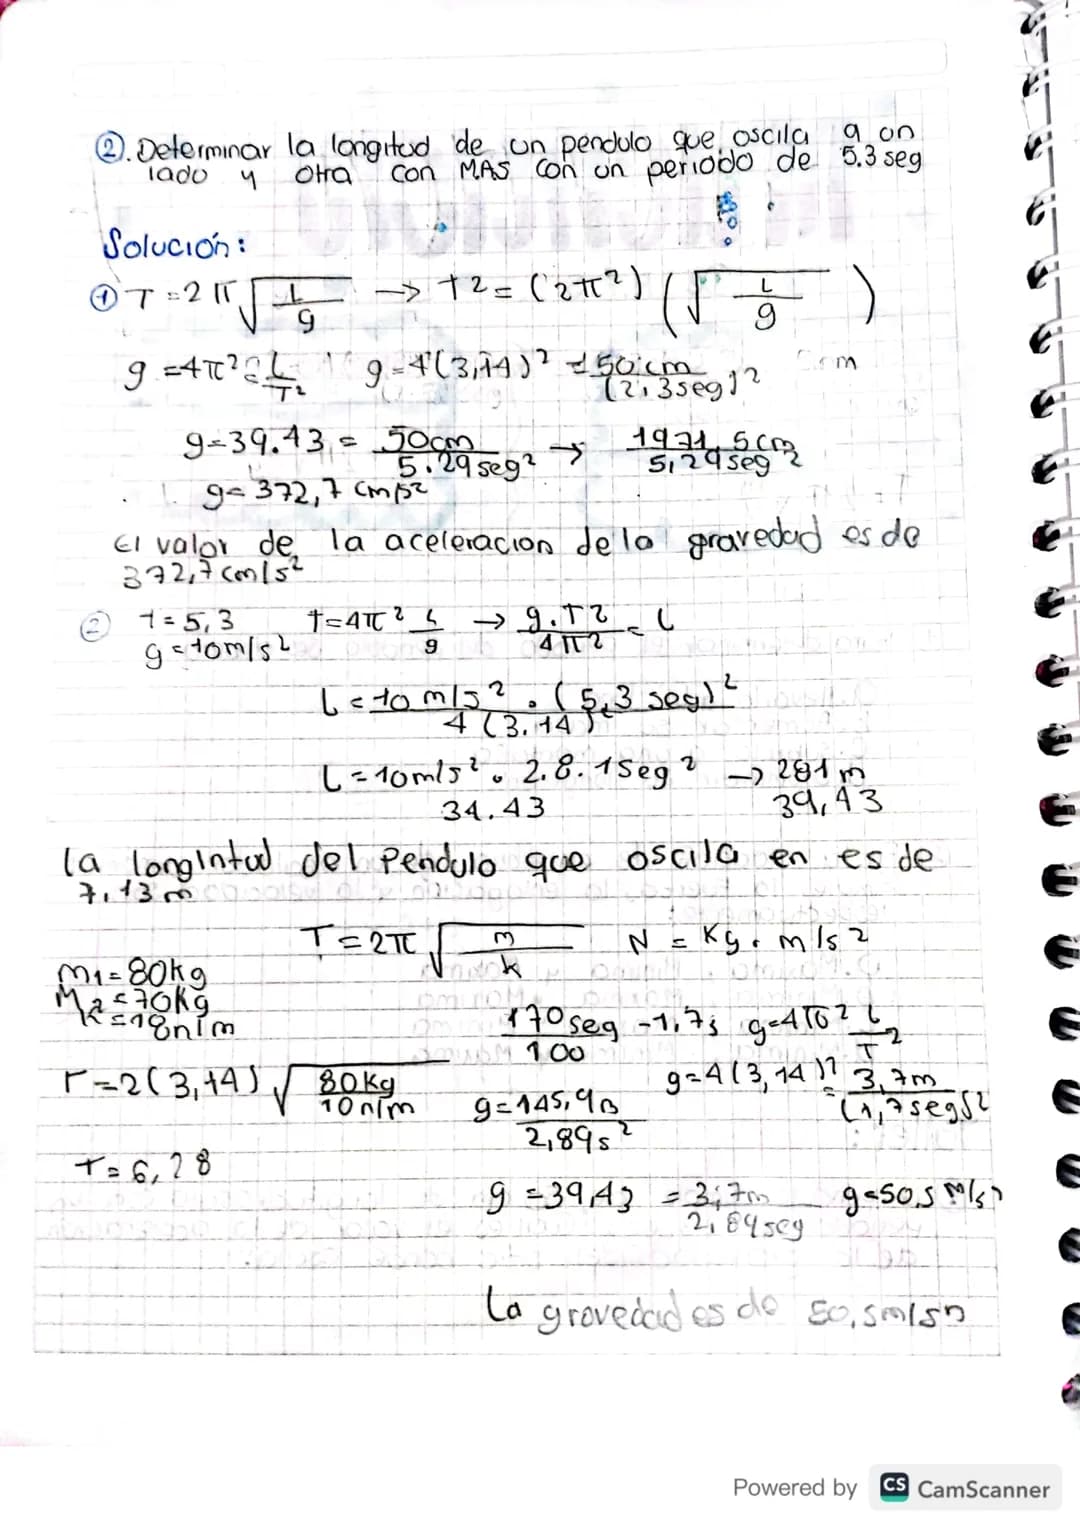 ②. Determinar la longitud de un pendulo que oscila a un
lado y otra con MAS con un periodo de 5.3 seg
Solución:
① T = 2π √ L/g → T2 = (2π²) (√ L/g )
g = 4π² = L/T² g = 4(3,14)² = 50cm/(2,3seg)² m
g = 39.43 = 50cm/5.29seg² → 1971,5cm/5,29seg2
g = 372,7 cm/s²
El valor de la aceleracion de la gravedad es de
372,7 cm/s²
② t = 5,3 t = 4π² L/g → g.T2/4π2 = L
g = 10m/s²
L = 10 m/s² . (5,3 seg)²/4 (3.14)²
L = 10m/s² . 2.8.1seg²/34.43 → 281 m/39,43
la longintud del Pendulo que oscila en es de
7,13 m
T = 2π √ m/k N = Kg . m/s2
m1 = 80kg
M2 = 70kg
K = 18n/m
170seg/100 -1,7s g=4π² L/T2
T = 2(3,14) √ 80kg/10n/m g = 4(3,14)² = 3,7m/(1,7seg)²
g = 145,9/2,89s²
T = 6,28
g = 39,43 = 3,7m/2,89seg g = 50,5 m/s
La gravedad es de 50,5m/s
Powered by CS CamScanner